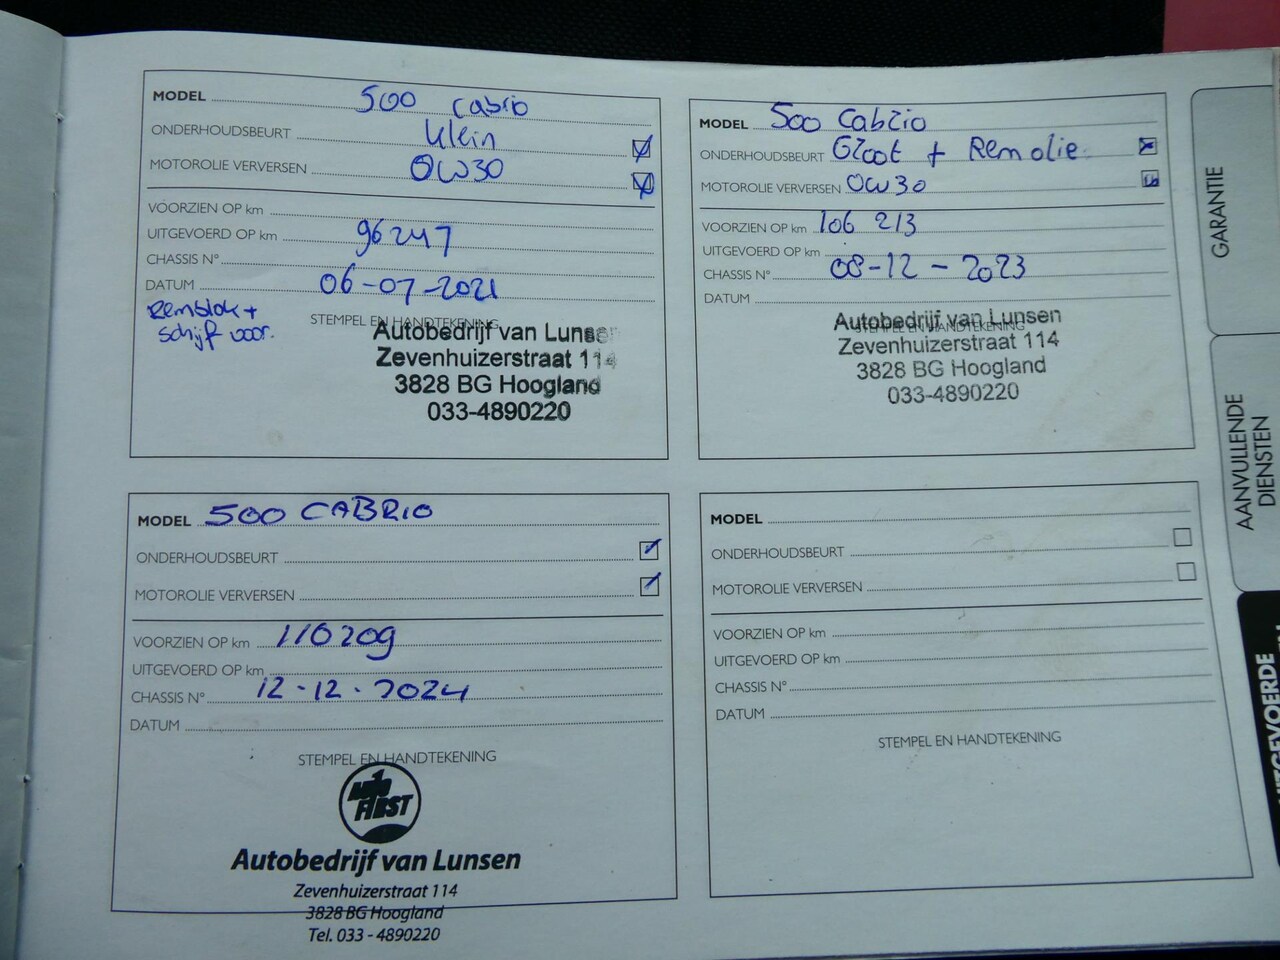 MODEL 500 cabrio
ONDERHOUDSBEURT klein
MOTOROLIE VERVERSEN 0W30
VOORZIEN OP km
UITGEVOERD OP km 96247
CHASSIS N°
DATUM 06-07-2021
Remblok +
schijf voor.
STEMPEL EN HANDTEKENING
Autobedrijf van Lunsen
Zevenhuizerstraat 114
3828 BG Hoogland
033-4890220
MODEL 500 Cabrio
ONDERHOUDSBEURT Groot + Remolie
MOTOROLIE VERVERSEN 0W30
VOORZIEN OP km 106 213
UITGEVOERD OP km
CHASSIS N° 08-12-2023
DATUM
STEMPEL EN HANDTEKENING
Autobedrijf van Lunsen
Zevenhuizerstraat 114
3828 BG Hoogland
033-4890220
MODEL 500 CABRIO
ONDERHOUDSBEURT
MOTOROLIE VERVERSEN
VOORZIEN OP km 110209
UITGEVOERD OP km
CHASSIS N° 12-12-2024
DATUM
STEMPEL EN HANDTEKENING
FIRST
Autobedrijf van Lunsen
Zevenhuizerstraat 114
3828 BG Hoogland
Tel. 033 - 4890220
MODEL
ONDERHOUDSBEURT
MOTOROLIE VERVERSEN
VOORZIEN OP km
UITGEVOERD OP km
CHASSIS N°
DATUM
STEMPEL EN HANDTEKENING
GARANTIE
AANVULLENDE
DIENSTEN
UITGEVOERDE